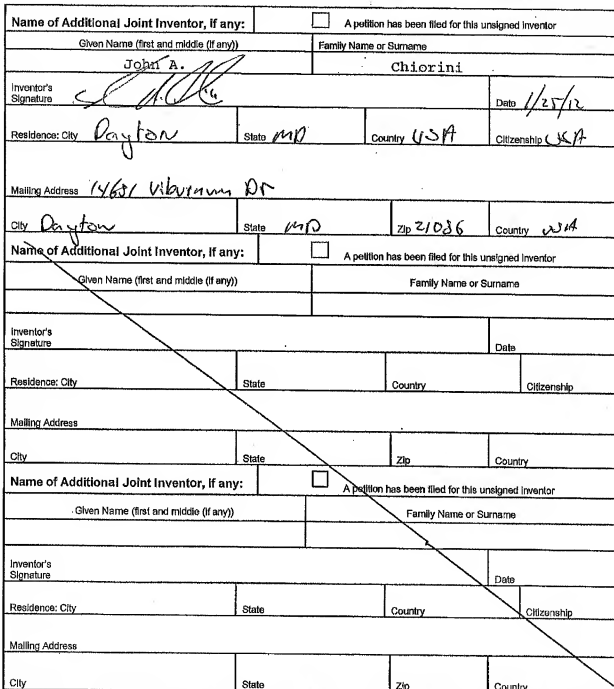 Name of Additional Joint Inventor, if any: A petition has been filed for this unsigned inventor
Given Name (first and middle (if any)) Family Name or Surname
John A. Chiorini
Inventor's Signature Date 1/25/12
Residence: City Dayton State MD Country USA Citizenship USA
Mailing Address 14651 Viburnum Dr
City Dayton State MD Zip 21036 Country USA
Name of Additional Joint Inventor, if any: A petition has been filed for this unsigned inventor
Given Name (first and middle (if any)) Family Name or Surname
Inventor's Signature Date
Residence: City State Country Citizenship
Mailing Address
City State Zip Country
Name of Additional Joint Inventor, if any: A petition has been filed for this unsigned inventor
Given Name (first and middle (if any)) Family Name or Surname
Inventor's Signature Date
Residence: City State Country Citizenship
Mailing Address
City State Zip Country